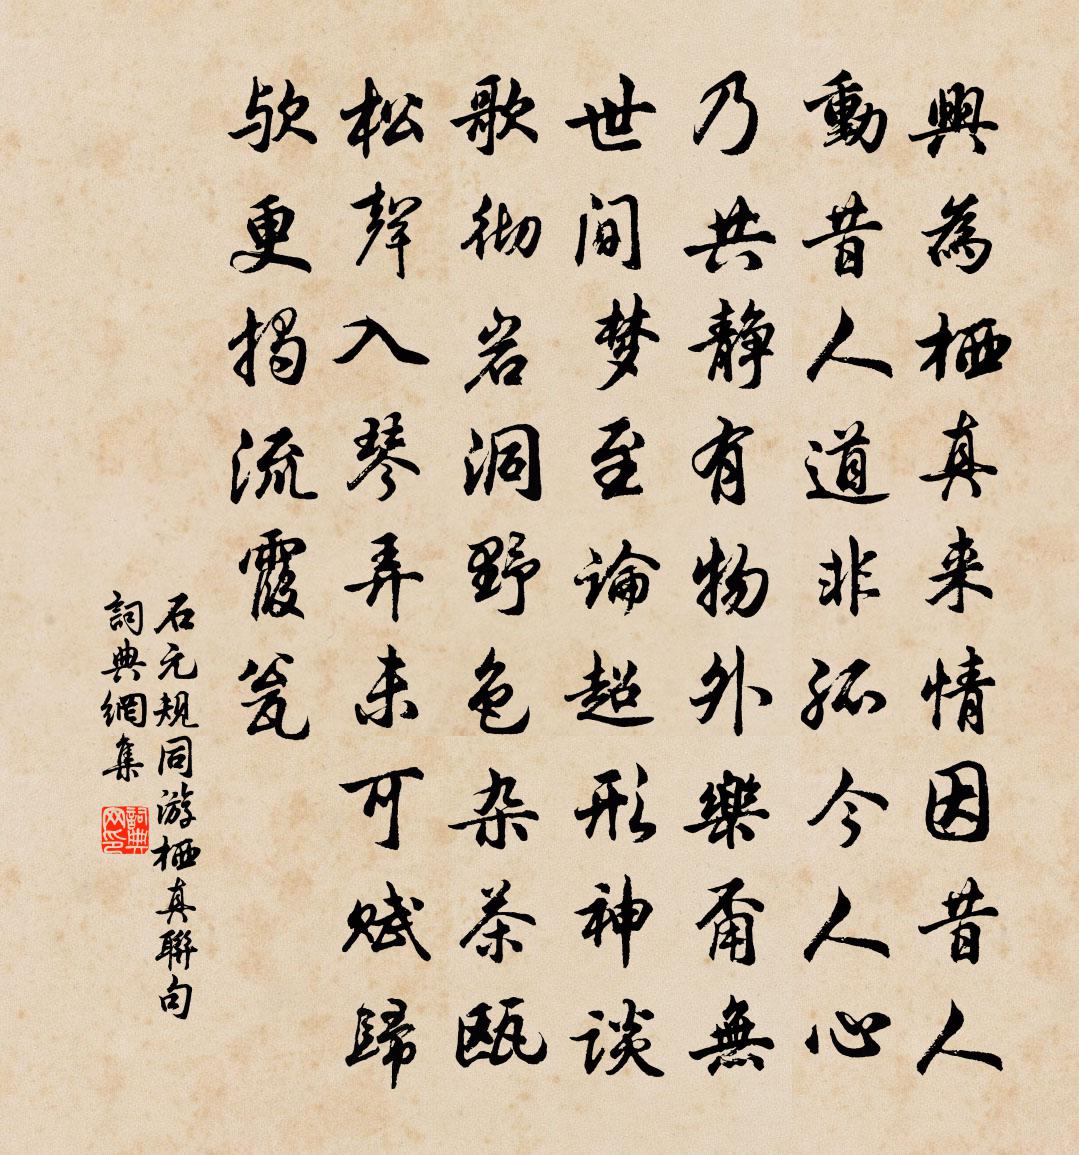 興為栖真来情因昔人
動昔人道非孤今人心
乃共静有物外樂甭無
世间梦至論超形神谈
歌彻岩洞野色杂茶瓯
松聲入琴弄未可赋歸
欤更揭流霞瓮
石元規同游栖真聯句
詞典網集
詞典网印